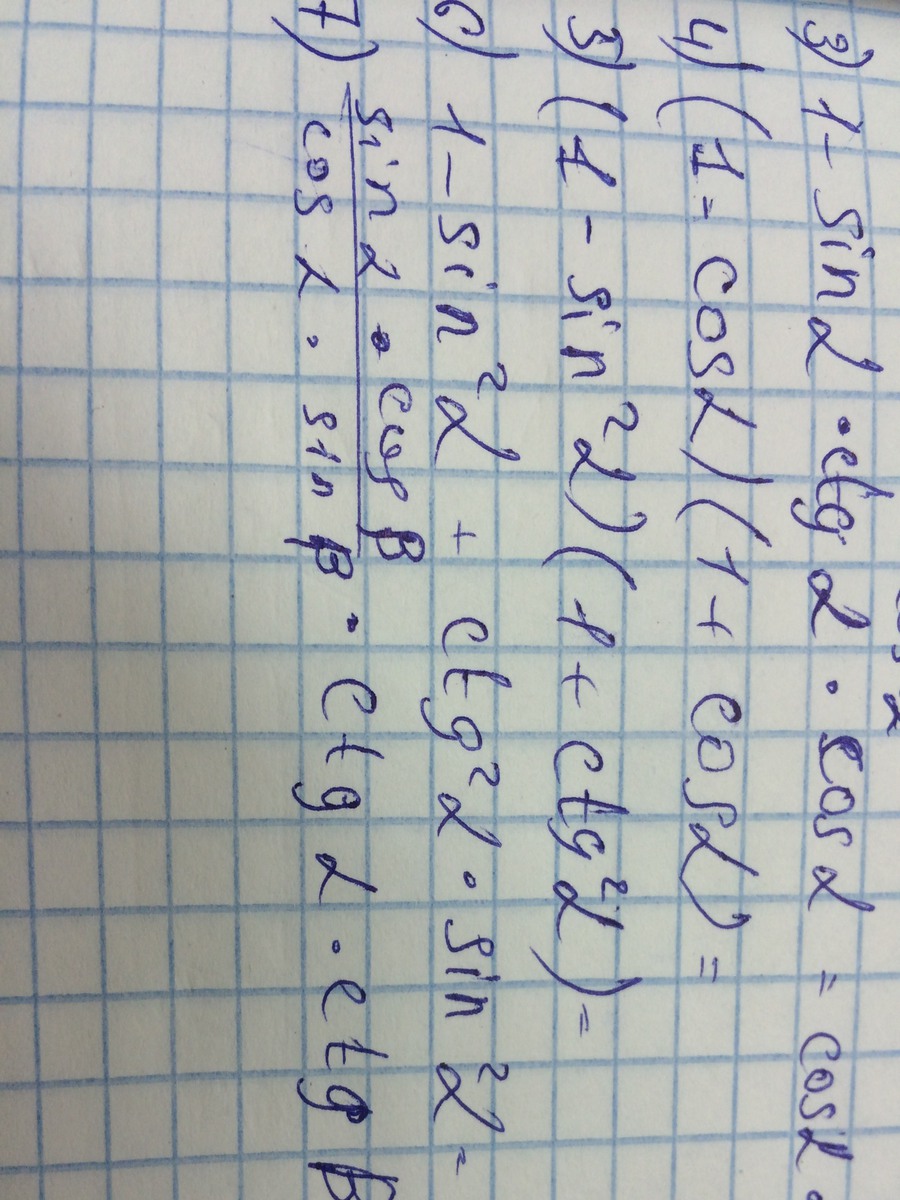 3) 1 - sin α · ctg α · cos α = cos α
4) (1 - cos α)(1 + cos α) =
5) (1 - sin² α)(1 + ctg² α) =
6) 1 - sin² α + ctg² α · sin² α =
7) sin α · cos β / cos α · sin β · ctg α · ctg β